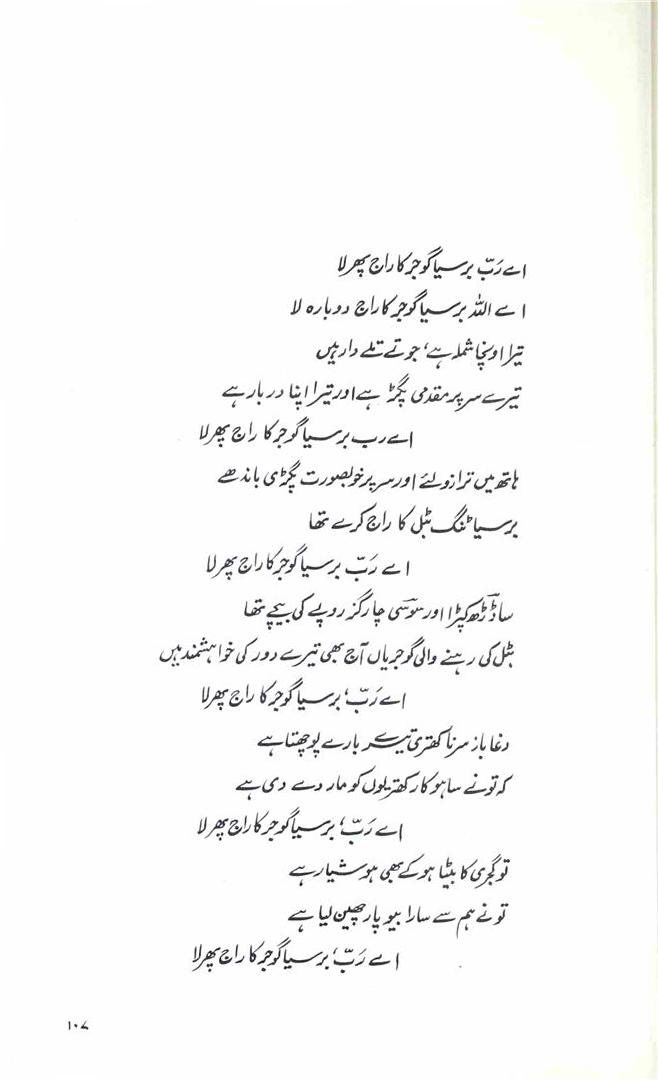 اے رَبّ برسیا گوجر کا راج پھر لا
اے اللہ برسیا گوجر کا راج دوبارہ لا
تیرا اونچا شملہ ہے، جوتے تلے دار ہیں
تیرے سر پر مقدمی پگڑ ہے اور تیرا اپنا دربار ہے
اے رب برسیا گوجر کا راج پھر لا
ہاتھ میں ترازو لئے اور سر پر خوبصورت پگڑی باندھے
برسیا ٹنگ بٹل کا راج کرے تھا
اے رَبّ برسیا گوجر کا راج پھر لا
کپڑا اور سَوسَی چار گز روپے کی بیچے تھا
بٹل کی رہنے والی گوجریاں آج بھی تیرے دور کی خواہشمند ہیں
اے رَبّ، برسیا گوجر کا راج پھر لا
دغا باز سرنا کھتری تیرے بارے پوچھتا ہے
کہ تو نے ساہوکار کھتریوں کو مار دے دی ہے
اے رَبّ، برسیا گوجر کا راج پھر لا
تو گجری کا بیٹا ہو کے بھی ہوشیار ہے
تو نے ہم سے سارا بیوپار چھین لیا ہے
اے رَبّ، برسیا گوجر کا راج پھر لا
۱۰۷